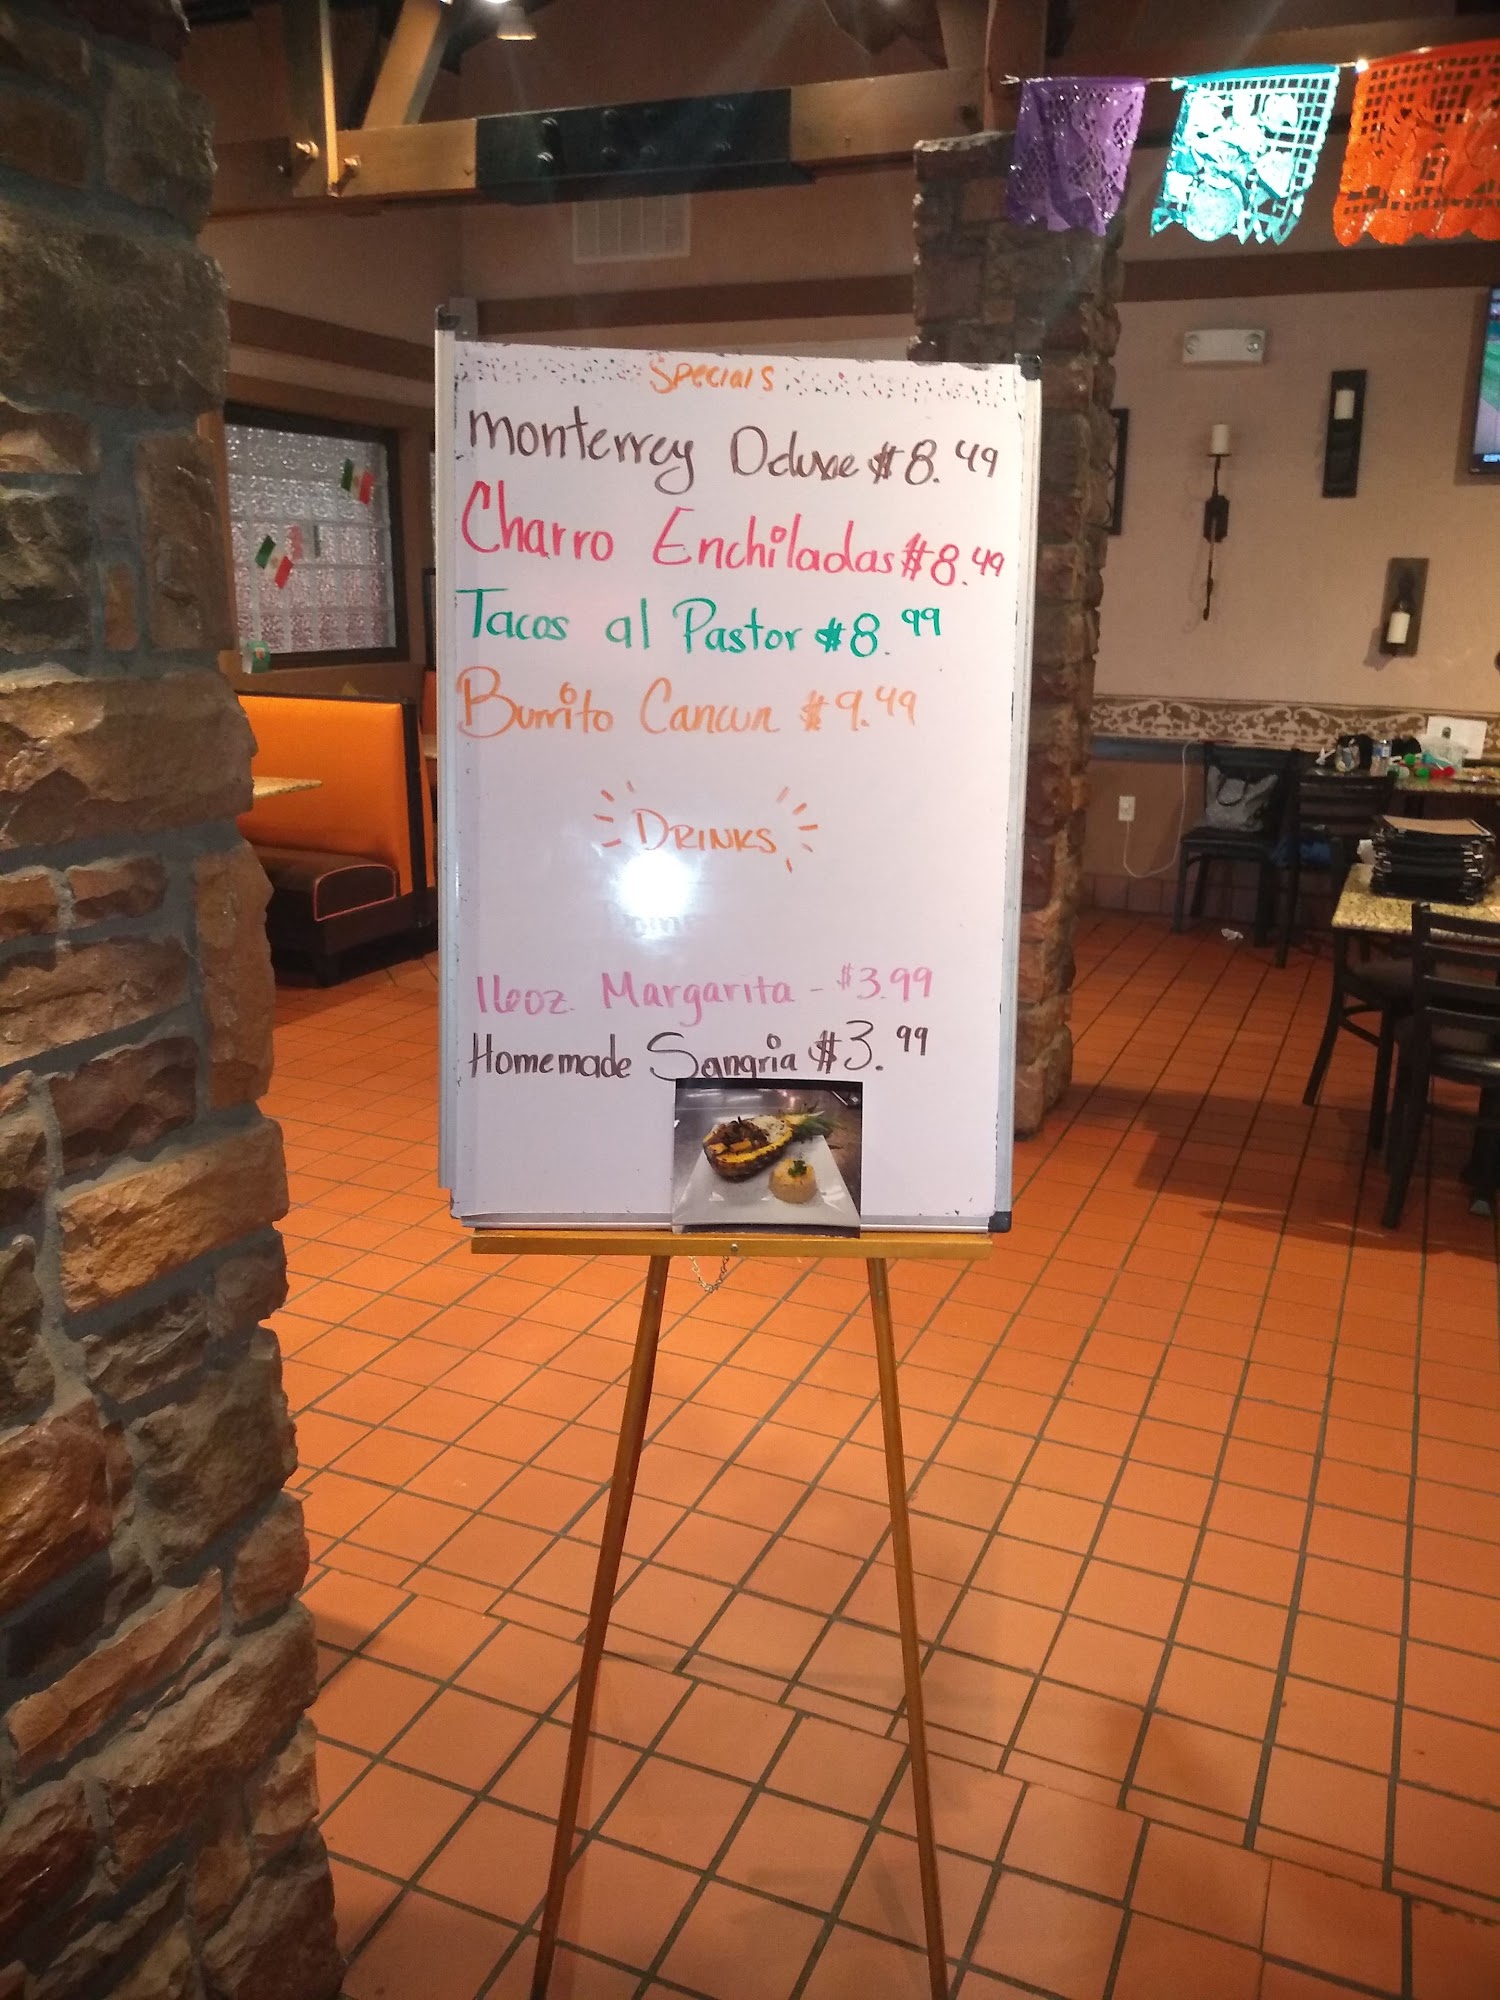 Specials
Monterrey Deluxe $8.49
Charro Enchiladas $8.49
Tacos al Pastor $8.99
Burrito Cancun $9.49
DRINKS
16oz. Margarita - $3.99
Homemade Sangria $3.99